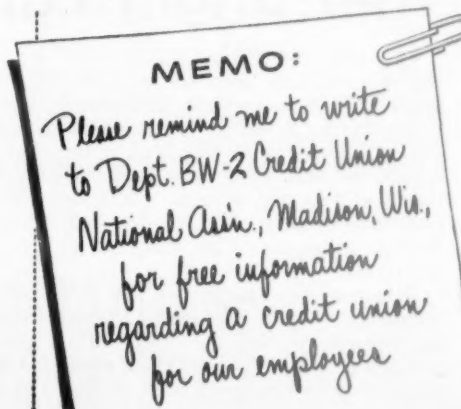 MEMO:
Please remind me to write
to Dept. BW-2 Credit Union
National Ass'n., Madison, Wis.,
for free information
regarding a credit union
for our employees